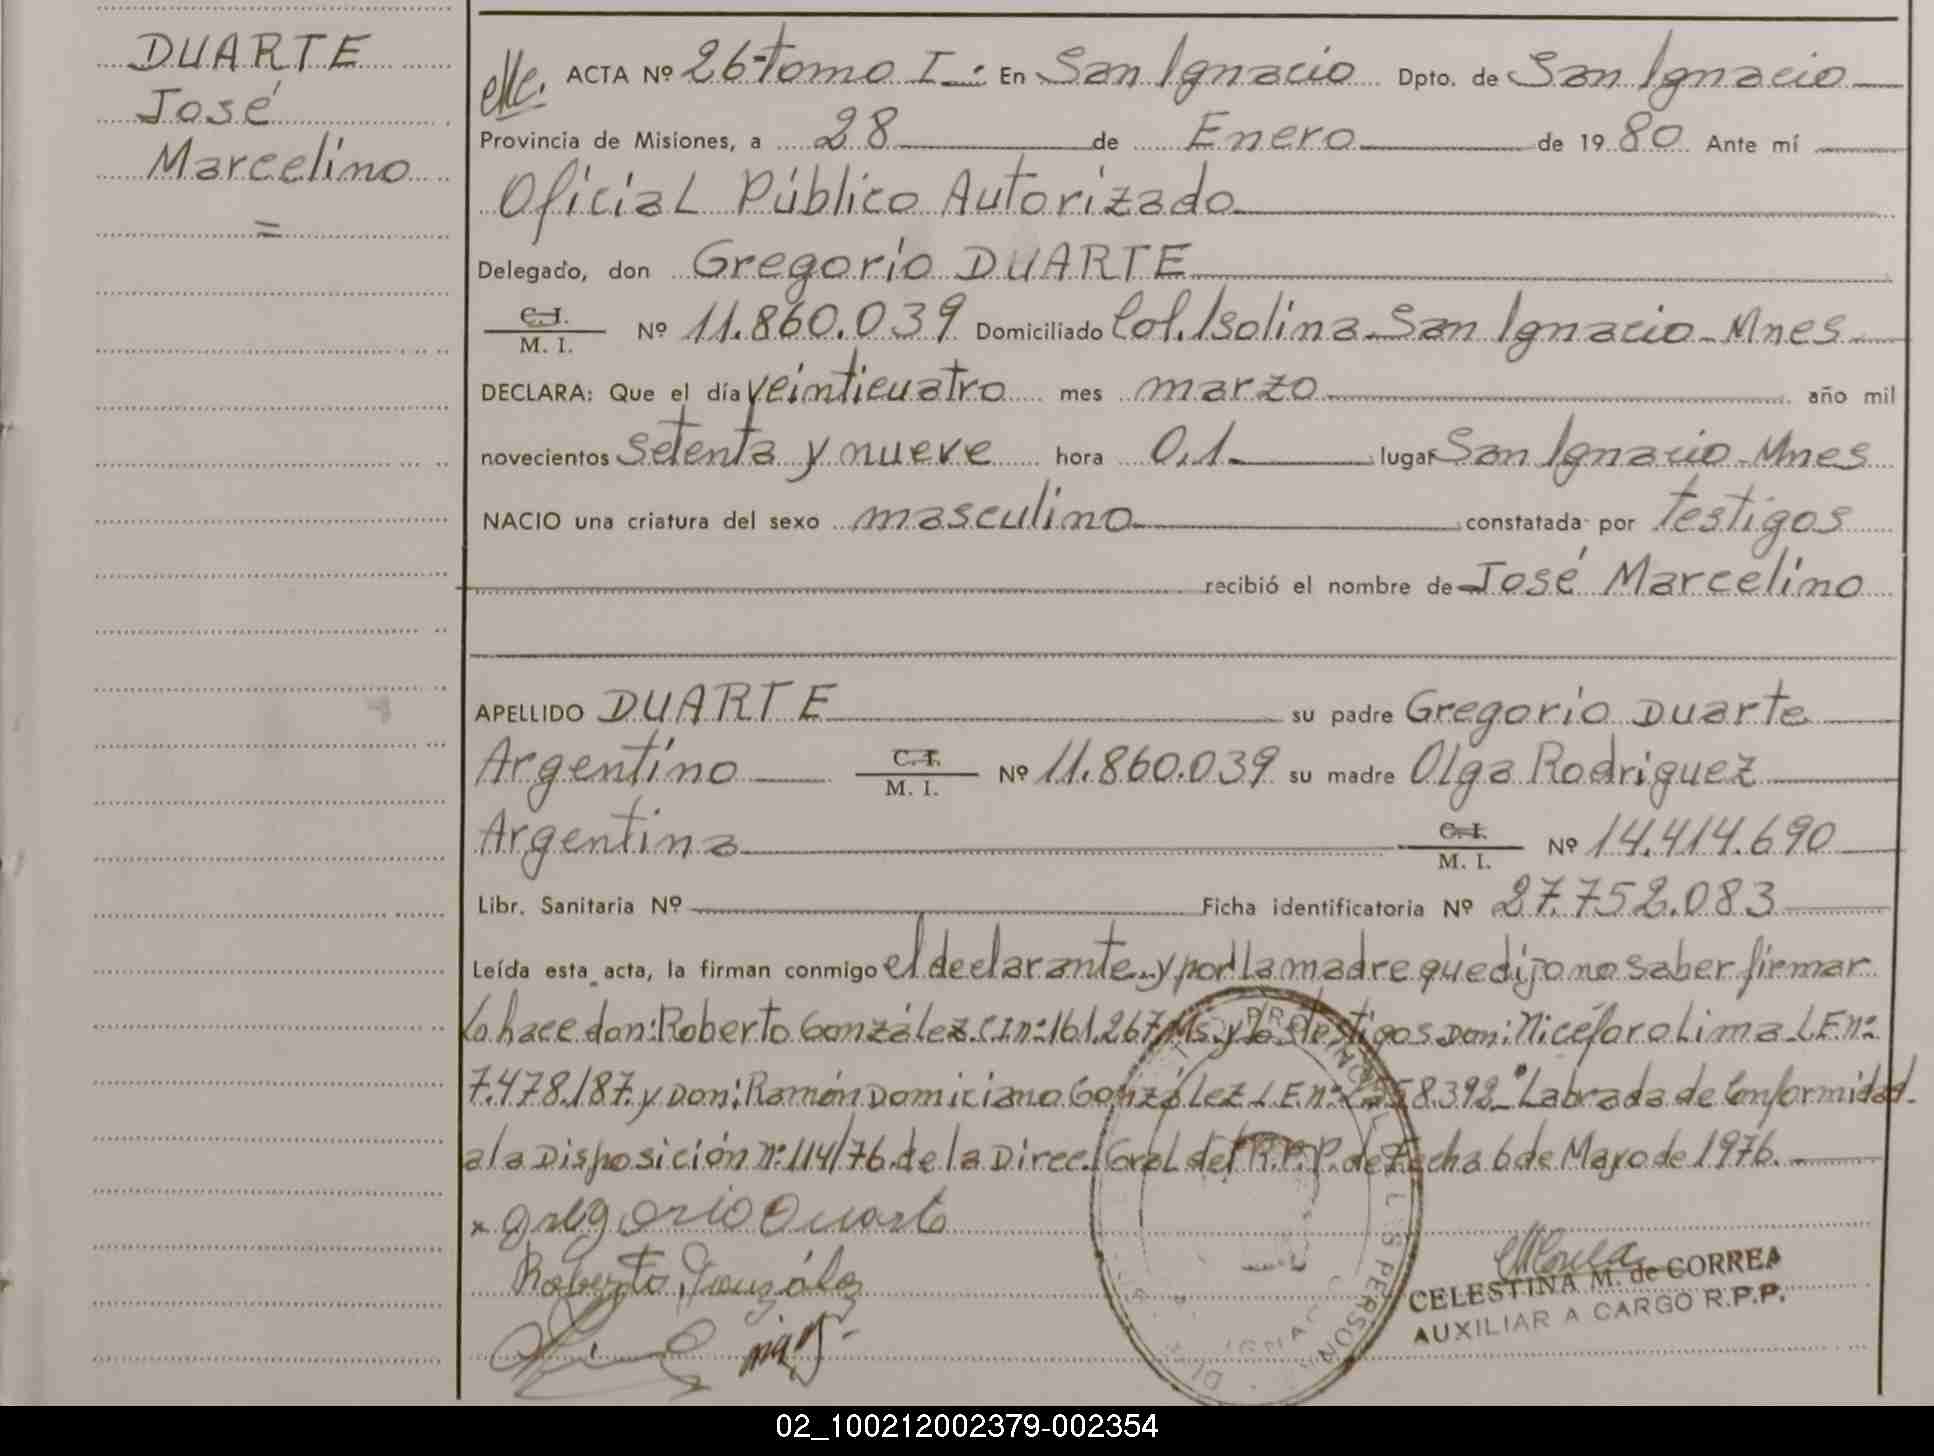 DUARTE
José
Marcelino
=
ACTA Nº 26-Tomo I.-: En San Ignacio Dpto. de San Ignacio
Provincia de Misiones, a 28 de Enero de 1980 Ante mí
Oficial Público Autorizado
Delegado, don Gregorio DUARTE
C.I.
M. I. Nº 11.860.039 Domiciliado Col. Isolina-San Ignacio-Mnes
DECLARA: Que el día veinticuatro mes marzo año mil
novecientos setenta y nueve hora 0,1 lugar San Ignacio-Mnes
NACIO una criatura del sexo masculino constatada por testigos
recibió el nombre de José Marcelino
APELLIDO DUARTE su padre Gregorio Duarte
Argentino C.I. M. I. Nº 11.860.039 su madre Olga Rodriguez
Argentina C.I. M. I. Nº 14.414.690
Libr. Sanitaria Nº Ficha identificatoria Nº 27.752.083
Leída esta acta, la firman conmigo el declarante y por la madre que dijo no saber firmar
Lo hace don: Roberto González C.I nº: 161.267 Ms. y los testigos Don: Nicéforo Lima L.E nº:
7.478.187. y Don: Ramón Domiciano González L.E. nº: 558.392 Labrada de Conformidad
a la Disposición nº: 114/76. de la Direc. Gral. del R.P.P. de Fecha 6 de Mayo de 1976.
x Gregorio Duarte
Roberto González
CELESTINA M. de CORREA
AUXILIAR A CARGO R.P.P.
02_100212002379-002354